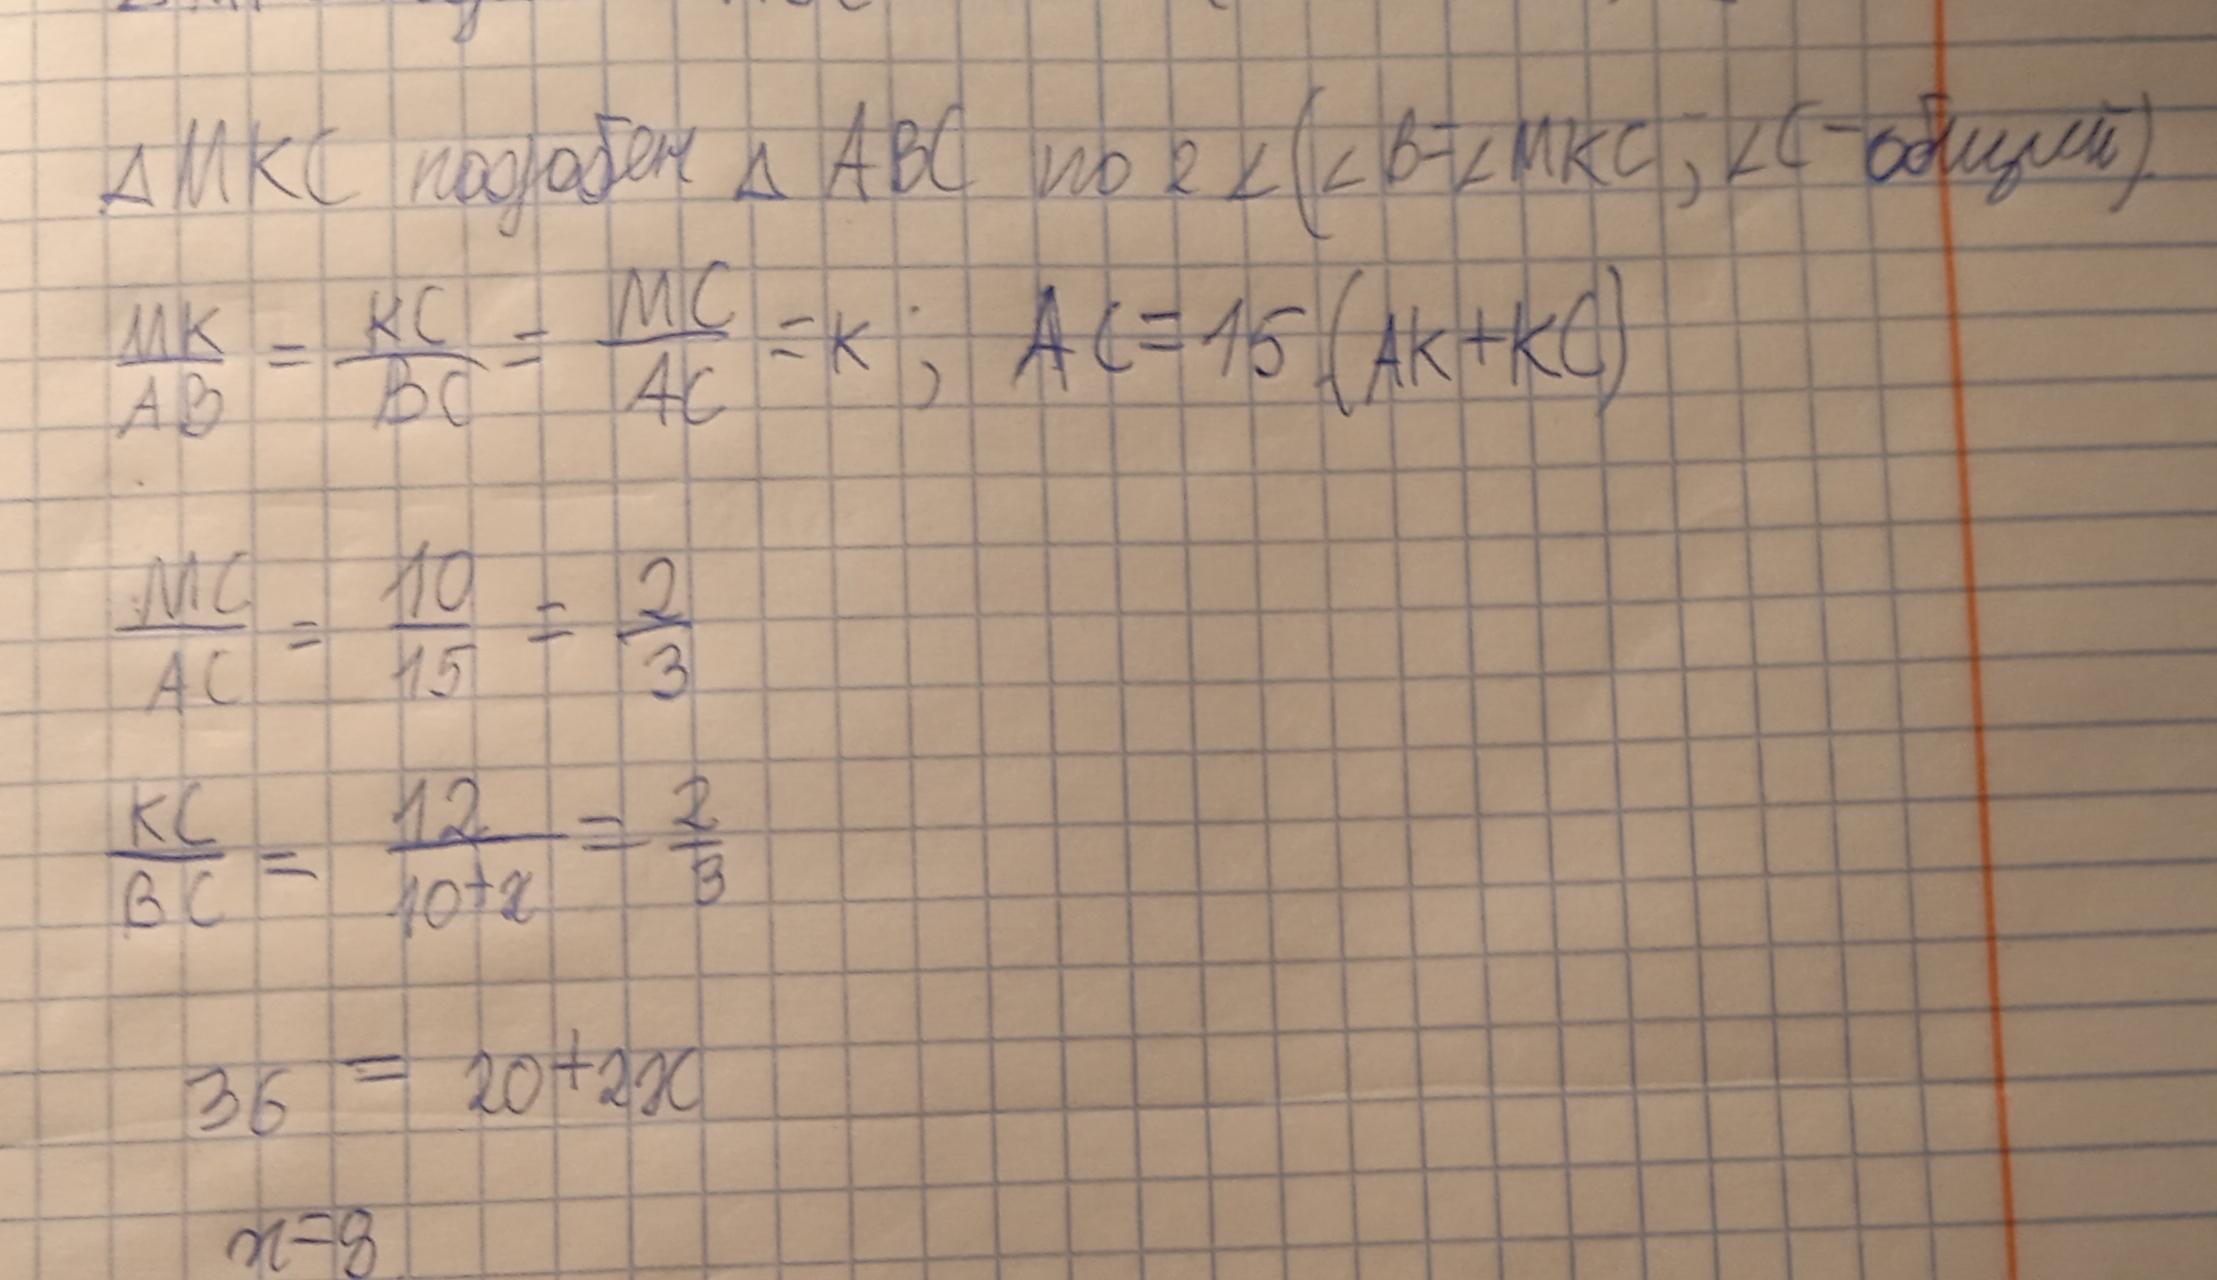 △MKC подобен △ABC по 2∠(∠B=∠MKC; ∠C-общий)
MK/AB = KC/BC = MC/AC = K; AC=15(AK+KC)
MC/AC = 10/15 = 2/3
KC/BC = 12/10+x = 2/3
36 = 20+2x
x=8